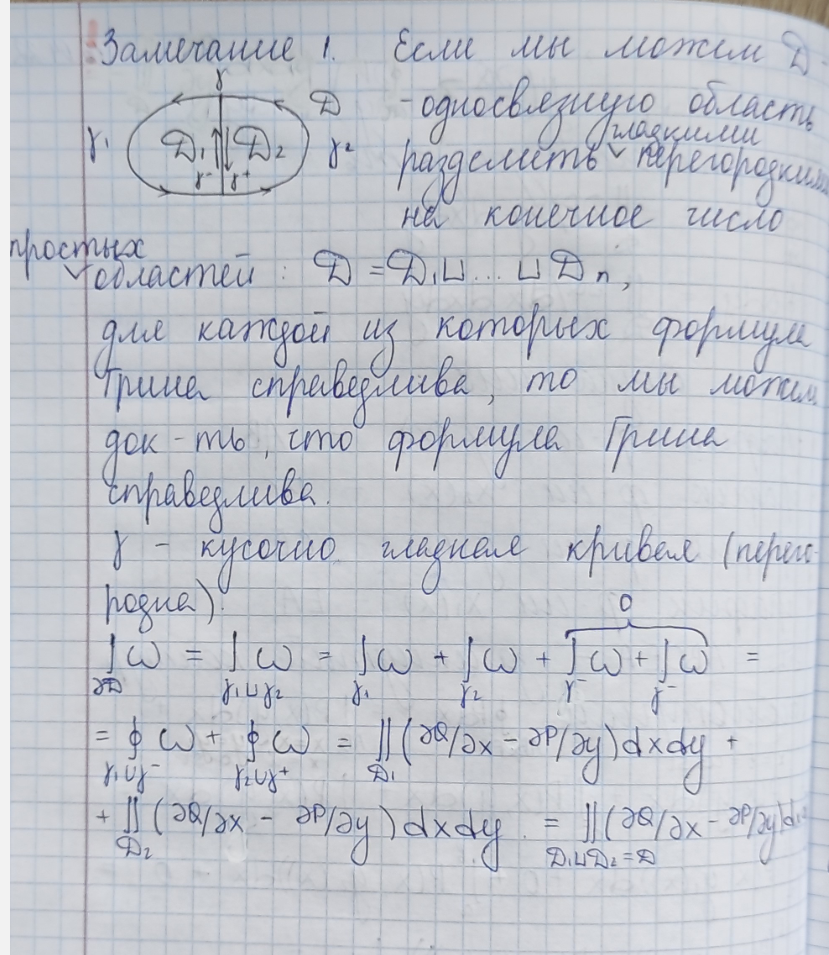 Замечание 1. Если мы можем D -
γ
D
-односвязную область
γ₁
D₁
D₂
γ₂
гладкими
γ⁻ γ⁺
разделить ˅ перегородками
на конечное число
простых
˅областей : D = D₁⊔ ... ⊔ Dₙ,
для каждой из которых формула
Грина справедлива, то мы можем
док-ть, что формула Грина
справедлива.
γ - кусочно гладкая кривая (перего-
родка).
0
∫_{∂D} ω = ∫_{γ₁⊔γ₂} ω = ∫_{γ₁} ω + ∫_{γ₂} ω + ∫_{γ⁻} ω + ∫_{γ⁻} ω =
= ∮_{γ₁∪γ⁻} ω + ∮_{γ₂∪γ⁺} ω = ∬_{D₁} (∂Q/∂x - ∂P/∂y) dxdy +
+ ∬_{D₂} (∂Q/∂x - ∂P/∂y) dxdy. = ∬_{D₁⊔D₂=D} (∂Q/∂x - ∂P/∂y)